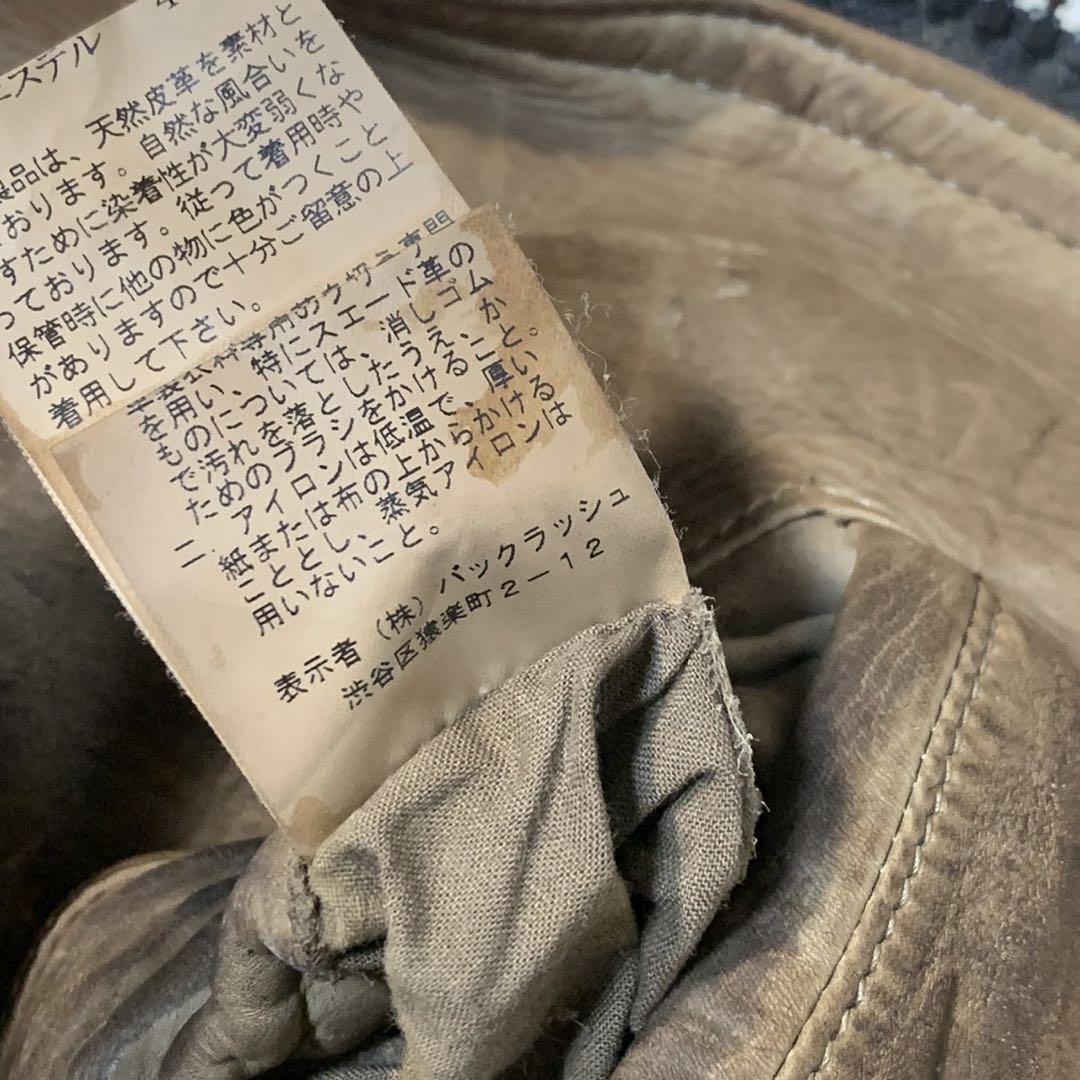 エステル
製品は、天然皮革を素材と
ております。自然な風合いを
すために染着性が大変弱くな
っております。従って着用時や
保管時に他の物に色がつくこと
がありますので十分ご留意の上
着用して下さい。
を用い、特にスエード革の
ものについては、消しゴム
で汚れを落としたうえ、か
ためのブラシをかけること。
二、アイロンは低温で、厚い
紙または布の上からかける
こととし、蒸気アイロンは
用いないこと。
表示者 (株)バックラッシュ
渋谷区猿楽町2-12